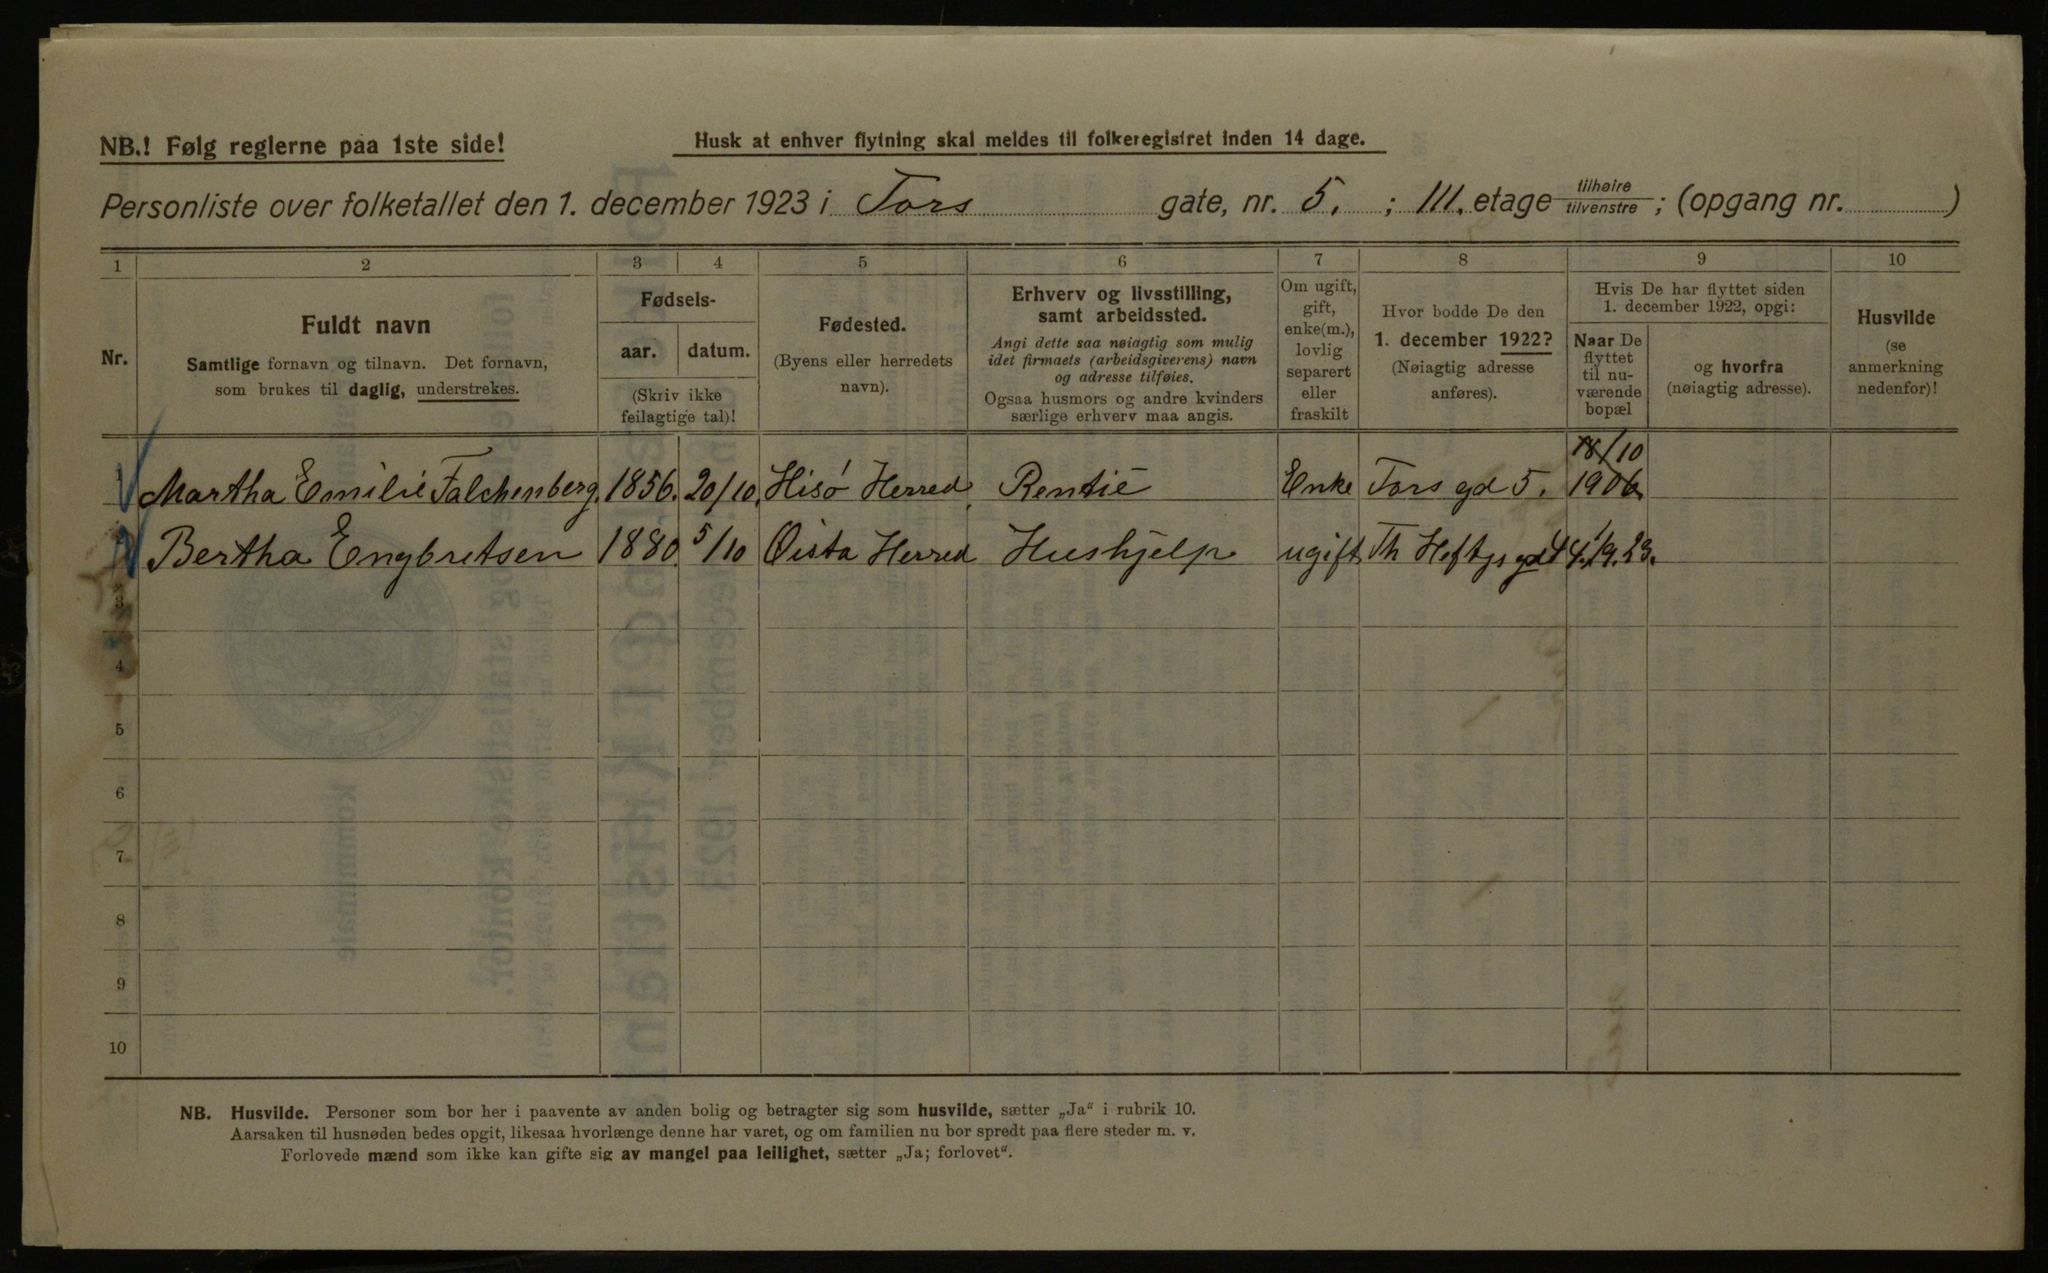 NB.! Følg reglerne paa 1ste side!
Husk at enhver flytning skal meldes til folkeregistret inden 14 dage.
Personliste over folketallet den 1. december 1923 i Tors gate, nr. 5. ; III. etage tilhøire tilvenstre ; (opgang nr. )
1 2 3 4 5 6 7 8 9 10
Nr.
Fuldt navn
Samtlige fornavn og tilnavn. Det fornavn,
som brukes til daglig, understrekes.
Fødsels-
aar. datum.
(Skriv ikke
feilagtige tal)!
Fødested.
(Byens eller herredets
navn).
Erhverv og livsstilling,
samt arbeidssted.
Angi dette saa nøiagtig som mulig
idet firmaets (arbeidsgiverens) navn
og adresse tilføies.
Ogsaa husmors og andre kvinders
særlige erhverv maa angis.
Om ugift,
gift,
enke(m.),
lovlig
separert
eller
fraskilt
Hvor bodde De den
1. december 1922?
(Nøiagtig adresse
anføres).
Hvis De har flyttet siden
1. december 1922, opgi:
Naar De
flyttet
til nu-
værende
bopæl
og hvorfra
(nøiagtig adresse).
Husvilde
(se
anmerkning
nedenfor)!
18/10
1 Martha Emilie Falchenberg. 1856. 20/10. Hisø Herred Rentié Enke Tors gd 5. 1906.
2 Bertha Engbretsen 1880. 5/10 Herred Hushjelp ugift Th Heftys gd
3
4
5
6
7
8
9
10
NB. Husvilde. Personer som bor her i paavente av anden bolig og betragter sig som husvilde, sætter „Ja“ i rubrik 10.
Aarsaken til husnøden bedes opgit, likesaa hvorlænge denne har varet, og om familien nu bor spredt paa flere steder m. v.
Forlovede mænd som ikke kan gifte sig av mangel paa leilighet, sætter „Ja; forlovet“.